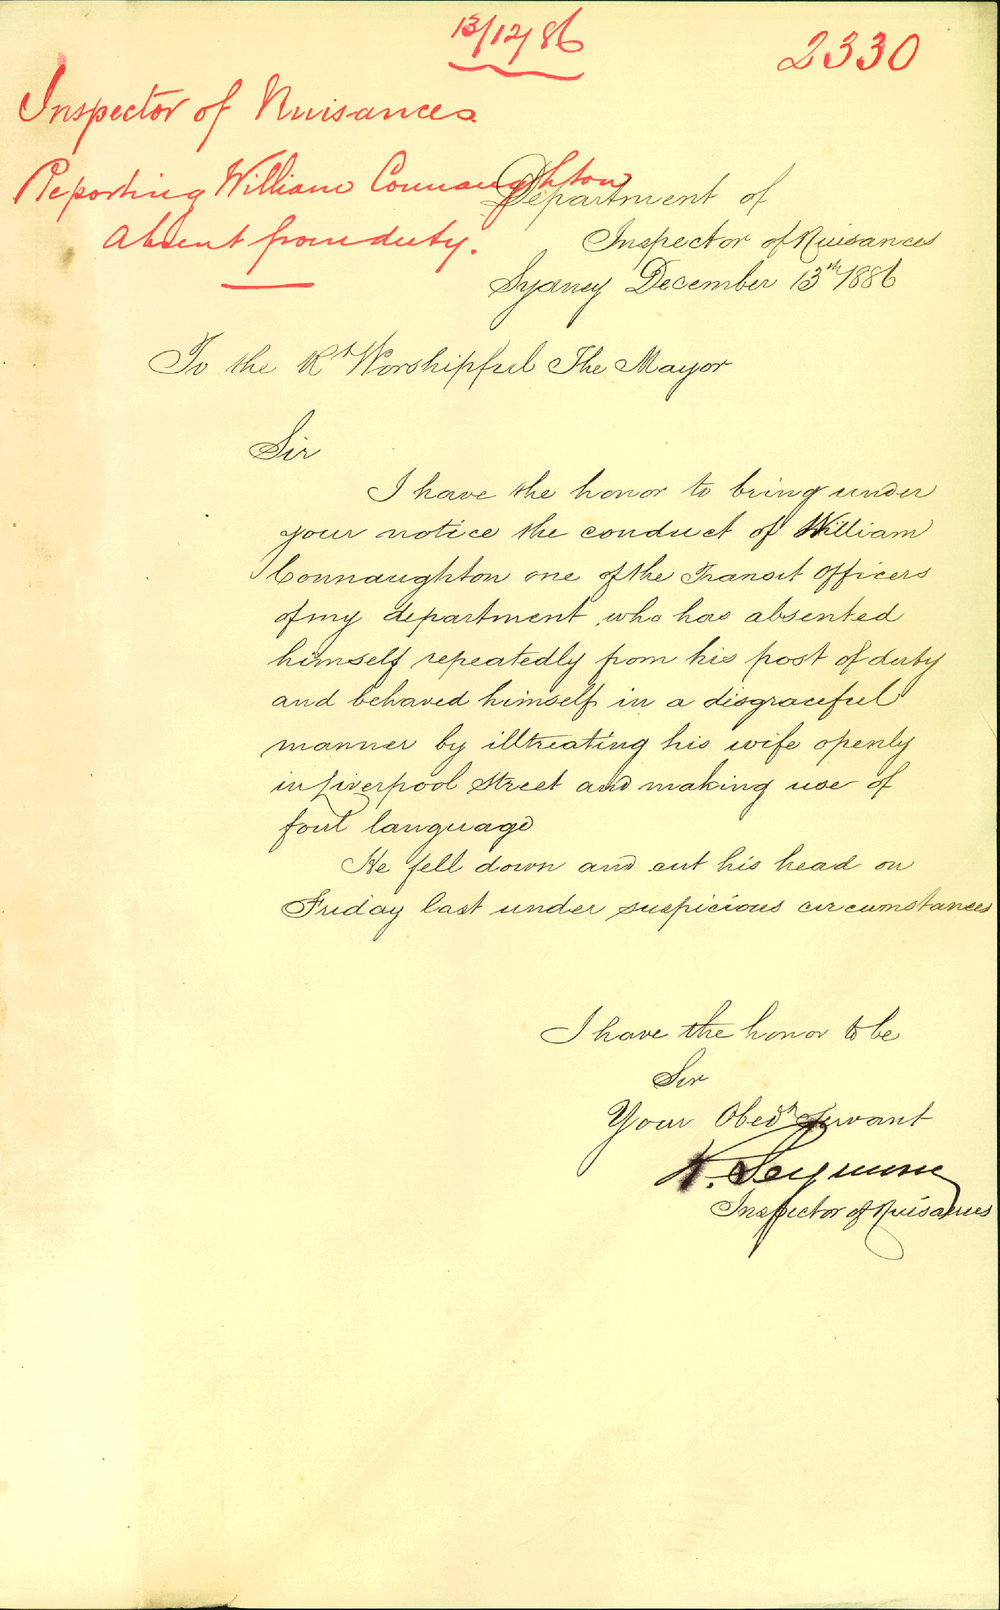 13/12/86
2330
Inspector of Nuisances
Reporting William Connaughton
Absent from duty.
Department of
Inspector of Nuisances
Sydney December 13th 1886
To the Rt Worshipful The Mayor
Sir
I have the honor to bring under
your notice the conduct of William
Connaughton one of the Transit Officers
of my department, who has absented
himself repeatedly from his post of duty
and behaved himself in a disgraceful
manner by illtreating his wife openly
in Liverpool Street and making use of
foul language
He fell down and cut his head on
Friday last under suspicious circumstances
I have the honor to be
Sir
Your Obedt Servant
R. Seymour
Inspector of Nuisances